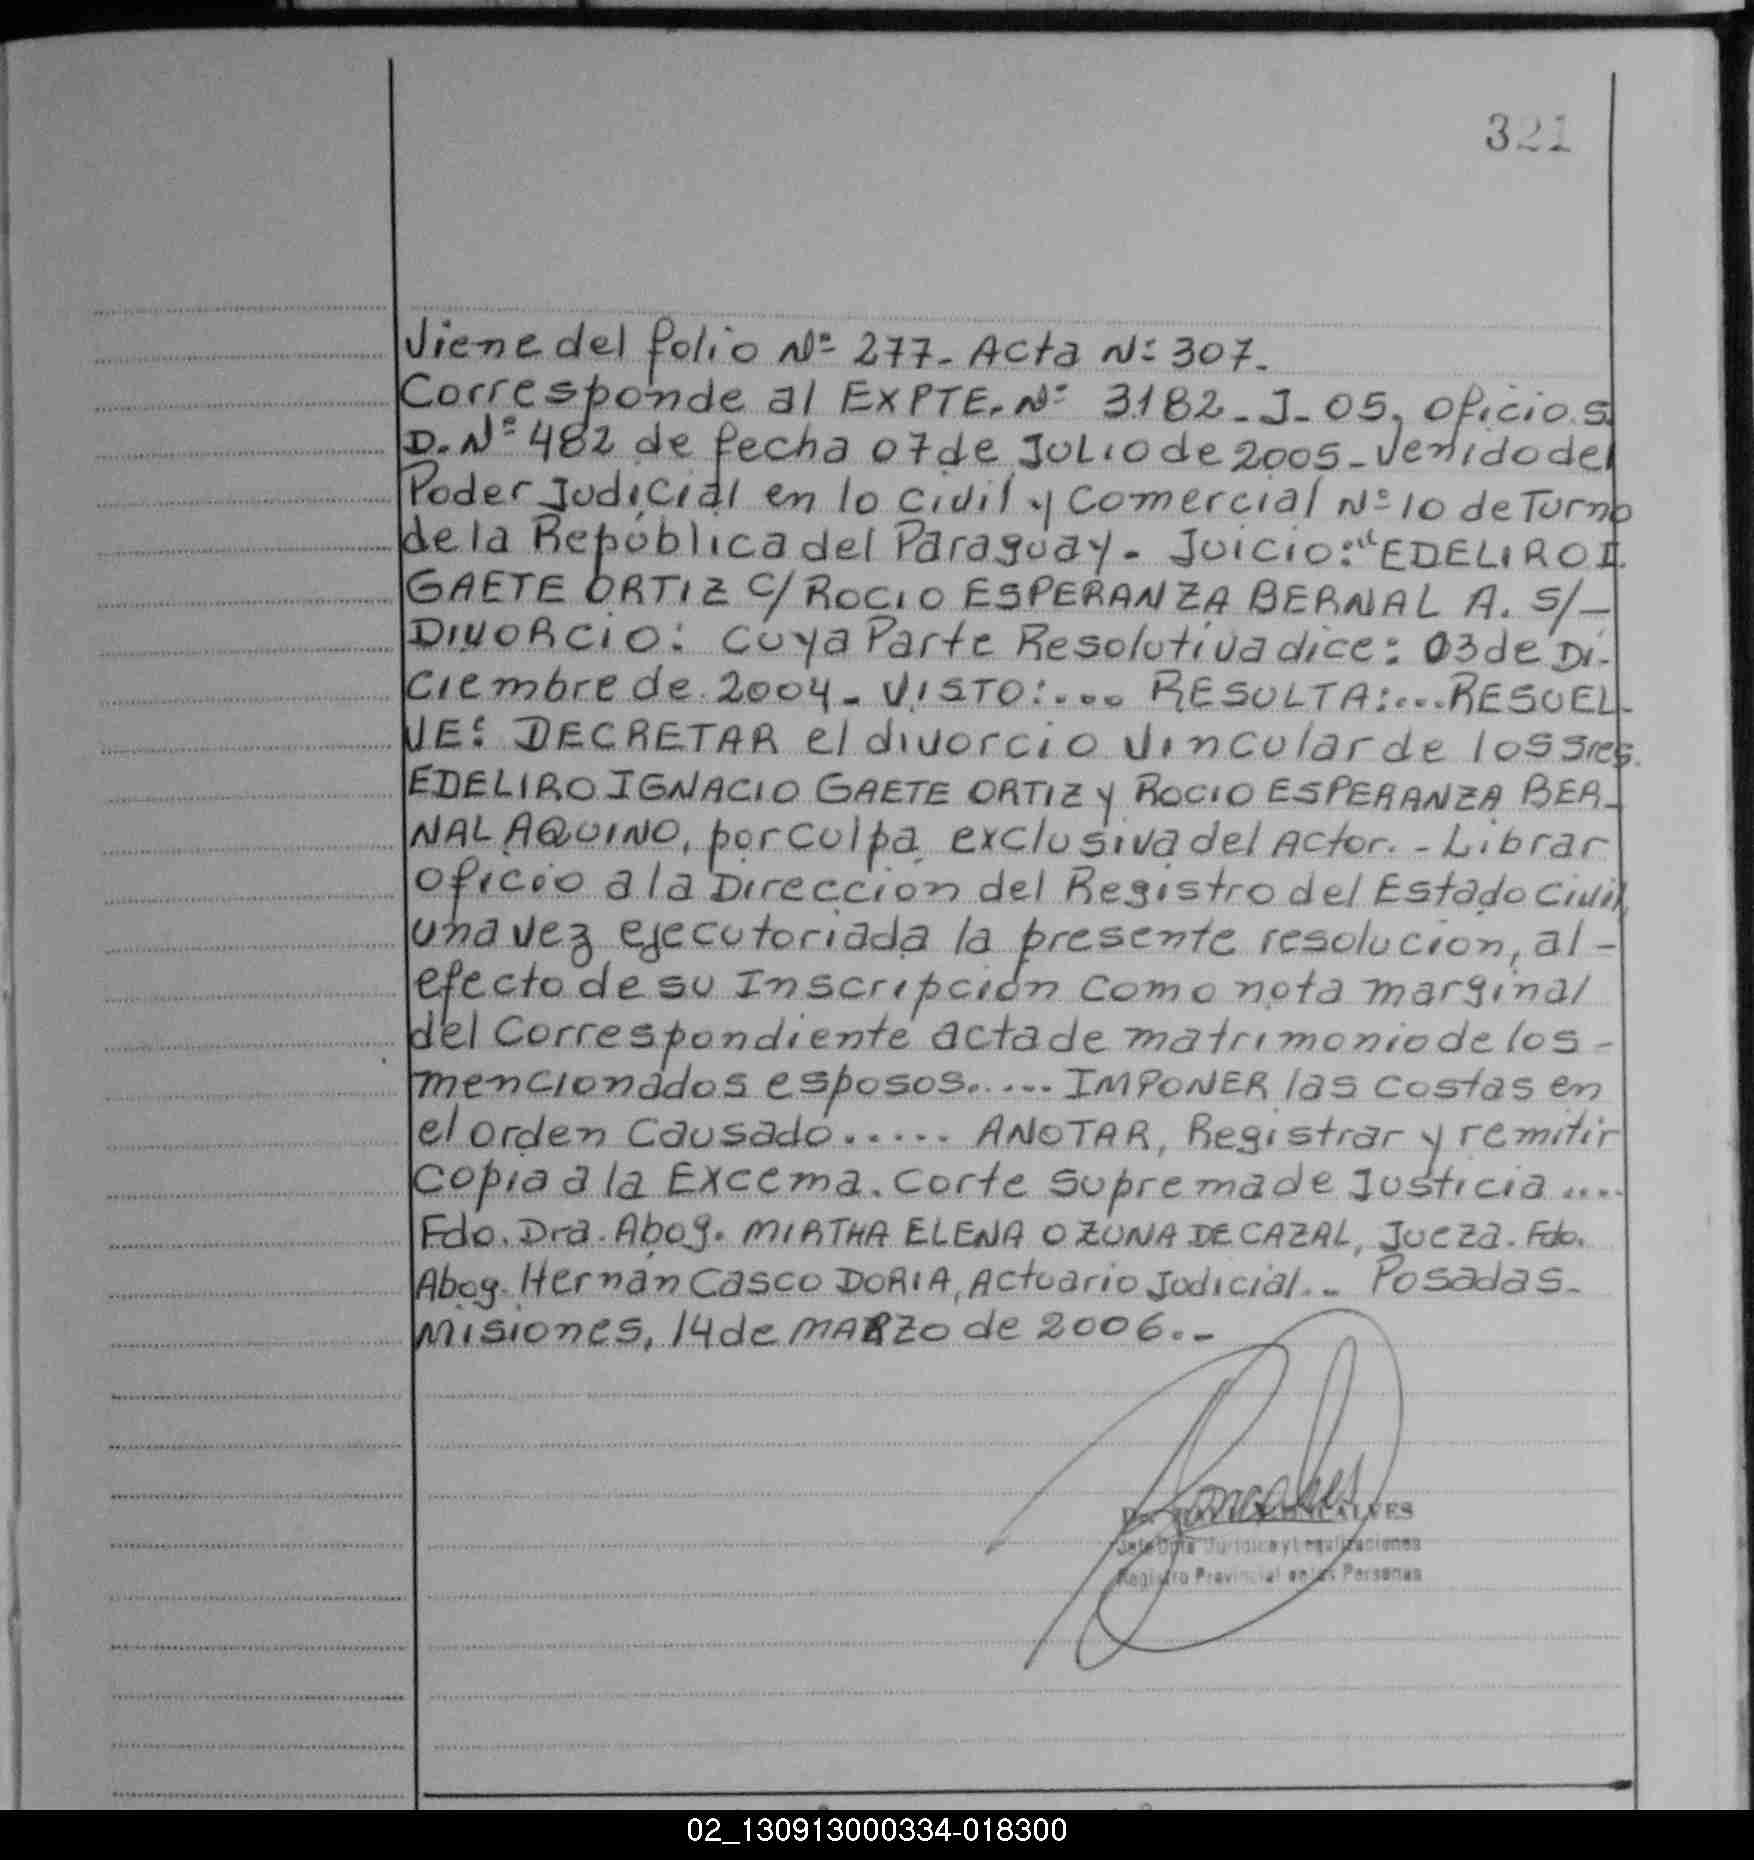 321
Viene del folio Nº 277- Acta Nº 307-
Corresponde al EXPTE. Nº 3182-J-05, Oficio S.
D. Nº 482 de fecha 07 de JULIO de 2005- Venido del
Poder Judicial en lo civil y Comercial Nº 10 de Turno
de la República del Paraguay- Juicio: "EDELIRO I.
GAETE ORTIZ C/ ROCIO ESPERANZA BERNAL A. S/-
DIVORCIO: Cuya Parte Resolutiva dice: 03 de Di-
ciembre de 2004- VISTO:... RESULTA:... RESUEL-
VE: DECRETAR el divorcio vincular de los sres.
EDELIRO IGNACIO GAETE ORTIZ y ROCIO ESPERANZA BER-
NAL AQUINO, por culpa exclusiva del Actor.- Librar
oficio a la Dirección del Registro del Estado Civil,
una vez ejecutoriada la presente resolucion, al-
efecto de su Inscripción como nota marginal
del Correspondiente acta de matrimonio de los-
mencionados esposos..... IMPONER las costas en
el orden Causado..... ANOTAR, Registrar y remitir
Copia a la Excema. Corte Suprema de Justicia....
Fdo. Dra. Abog. MIRTHA ELENA OZUNA DE CAZAL, Jueza. Fdo.
Abog. Hernán Casco DORIA, Actuario Judicial.- Posadas-
Misiones, 14 de MARZO de 2006.-
Jefe Dpto Jurídica y Legalizaciones
Registro Provincial de las Personas
02_130913000334-018300